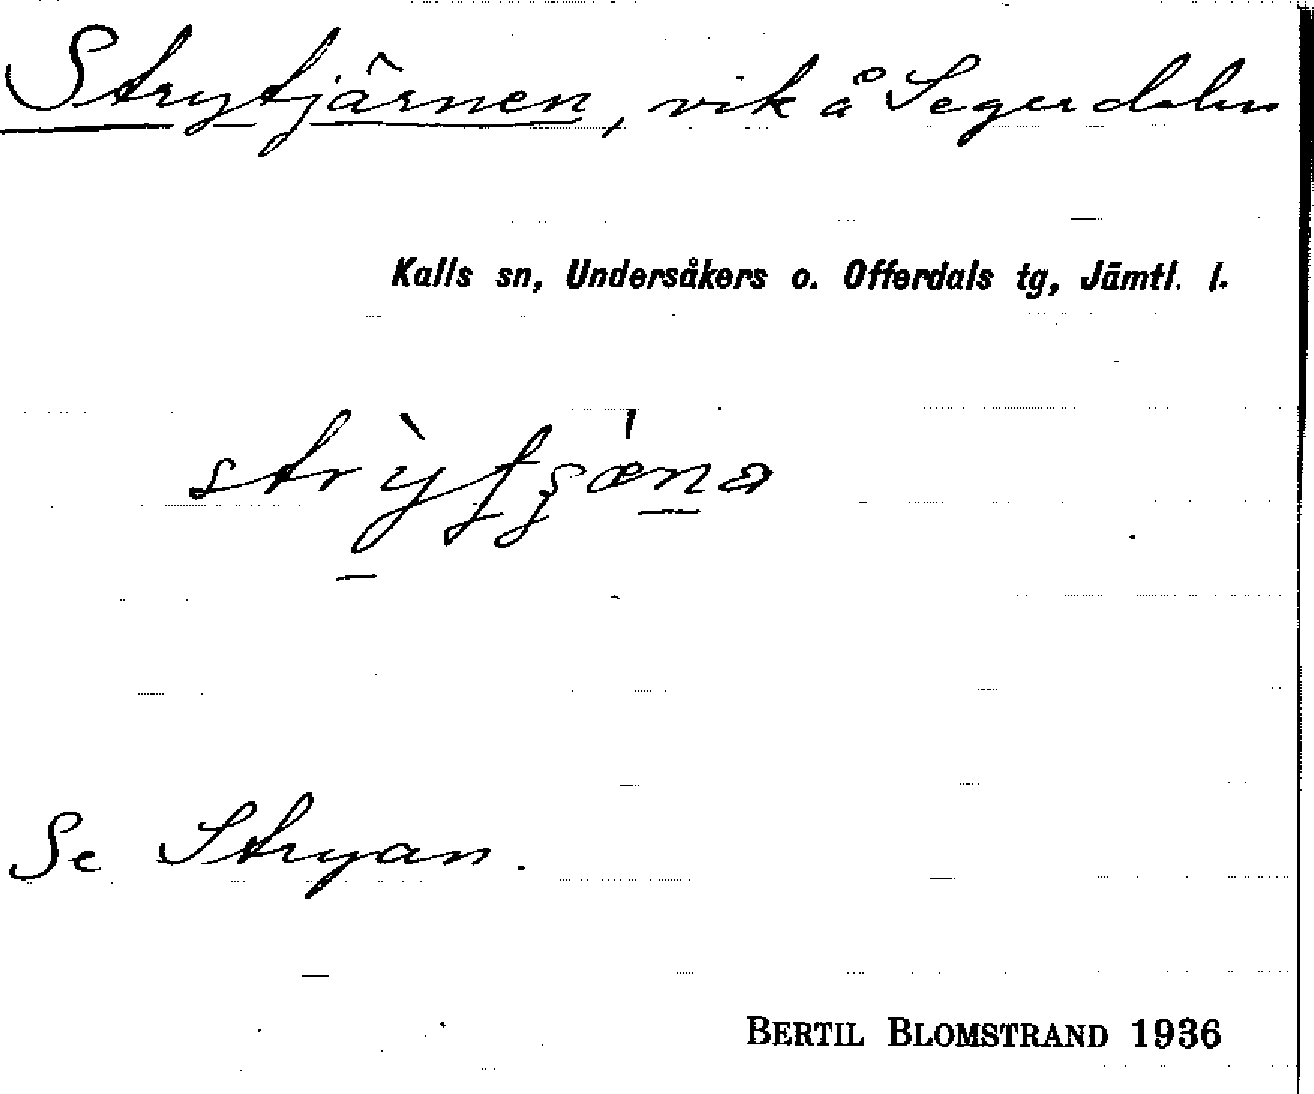 Strytjärnen, vik å Segerdalen
Kalls sn, Undersåkers o. Offerdals tg, Jämtl. l.
Se Stryan.
BERTIL BLOMSTRAND 1936